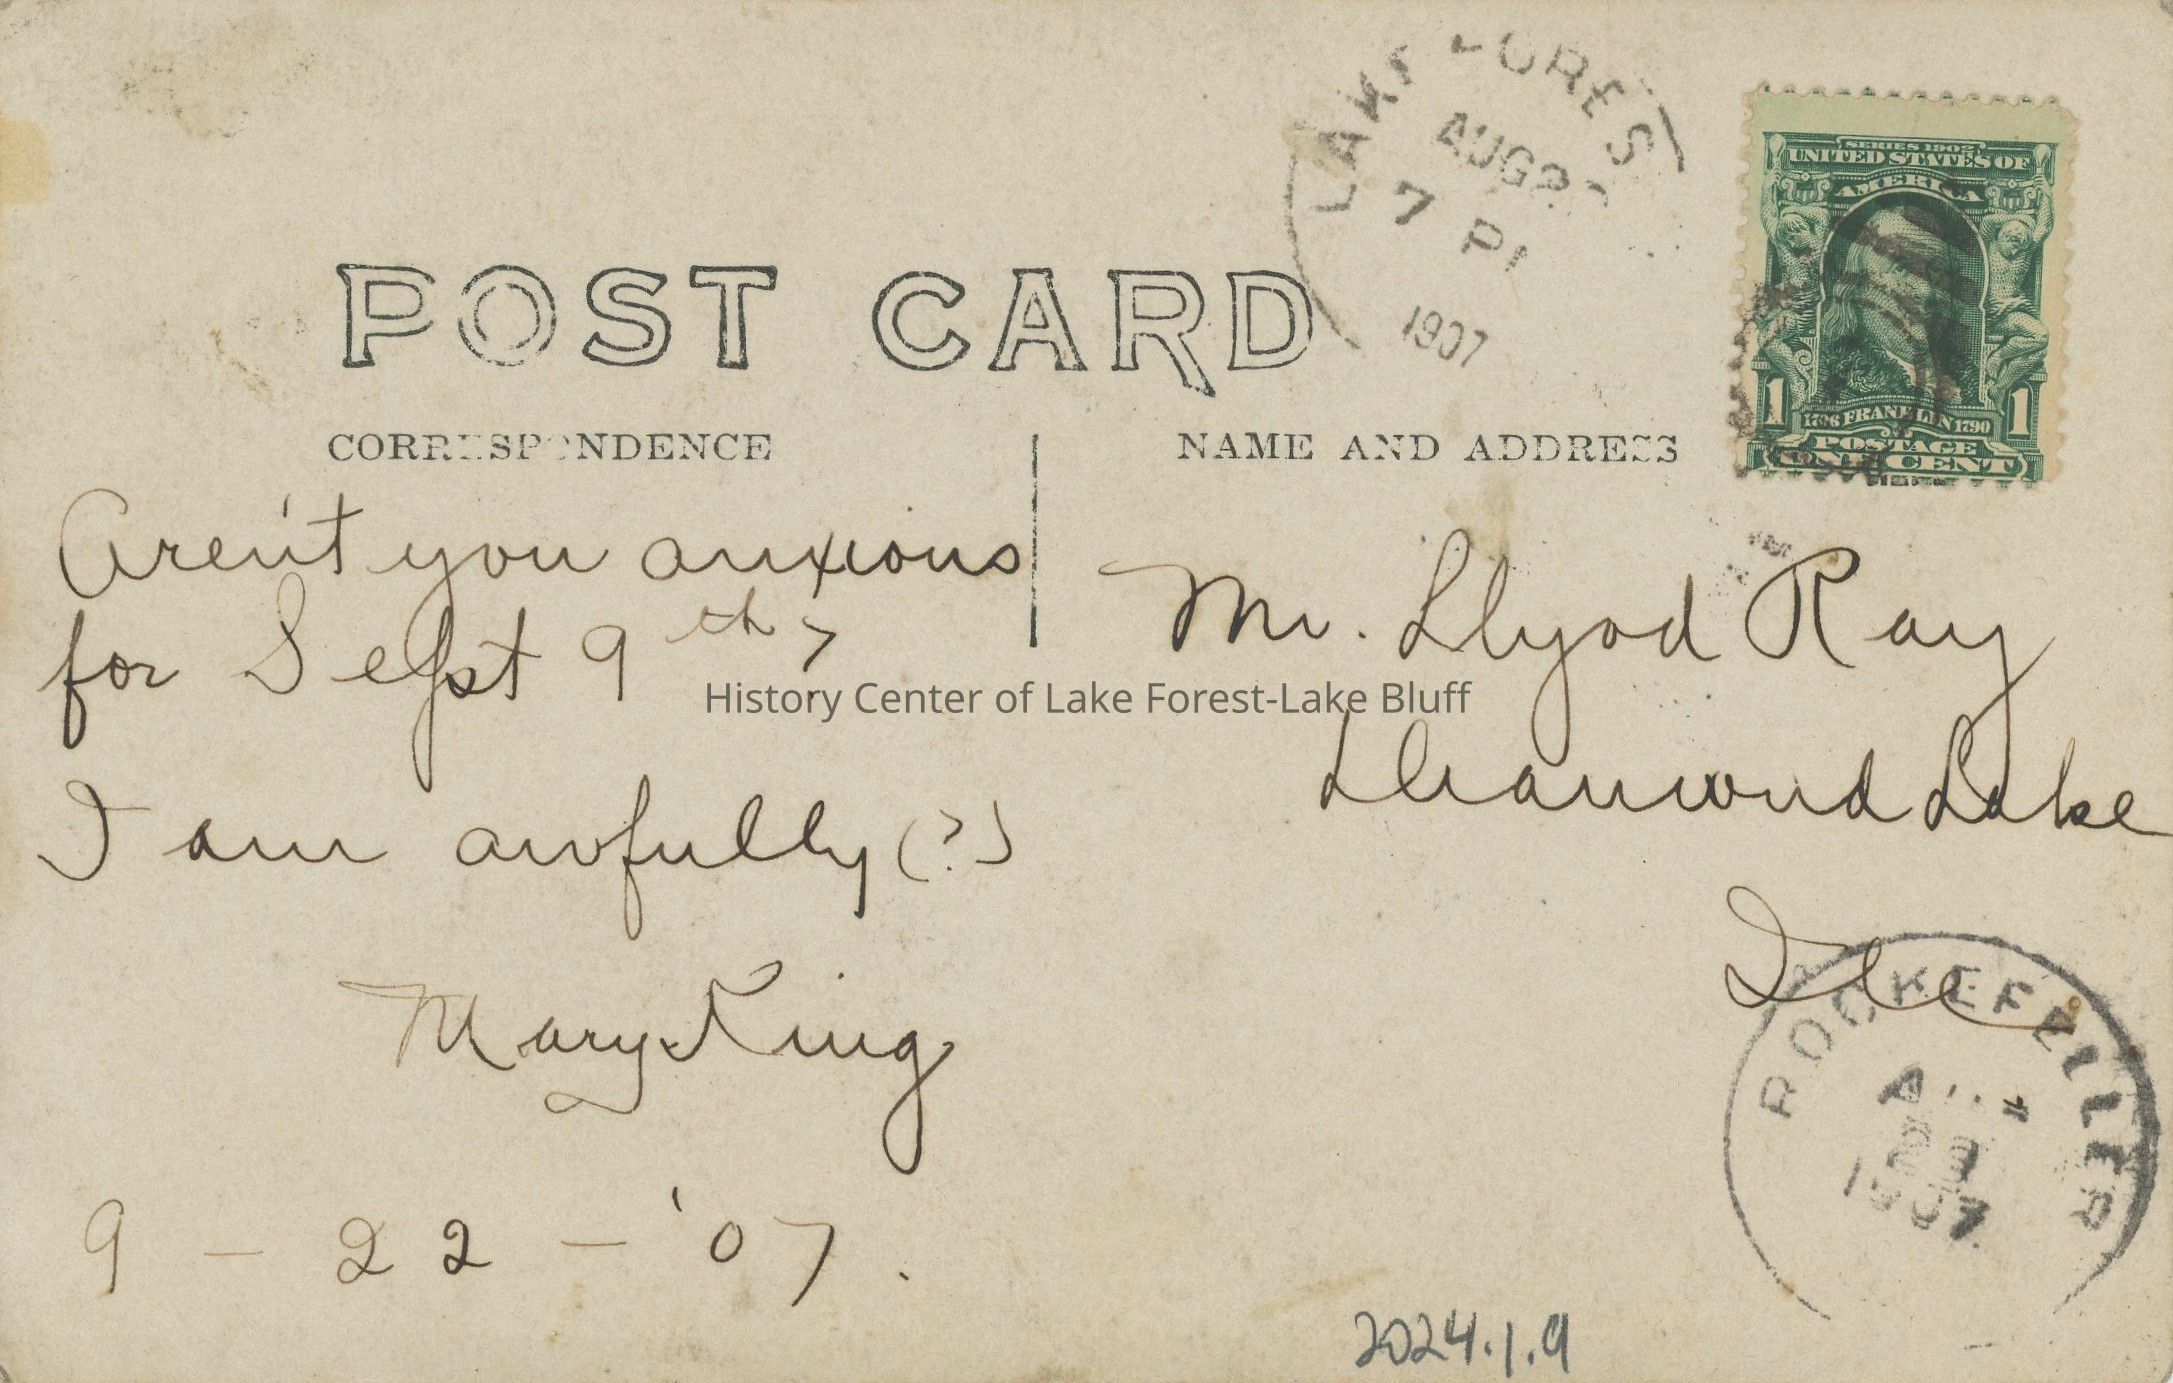 LAKE FORES
AUG 2
7 P
1907
SERIES 1902
UNITED STATES OF
AMERICA
1 1706 FRANKLIN 1790 1
POSTAGE
ONE CENT
POST CARD
CORRESPONDENCE
NAME AND ADDRESS
Aren't you anxious
for Sept 9th?
I am awfully (?)
Mary King
9 - 22 - '07.
Mr. Llyod Ray
Diamond Lake
Ill
History Center of Lake Forest-Lake Bluff
ROCKEFELLER
A
23
1907
2024.1.9